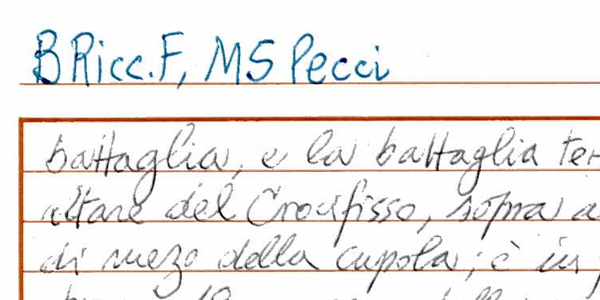 B Ricc. F, MS Pecci
battaglia, e la battaglia ter
altare del Crocifisso, sopra a
di mezo della cupola; è in